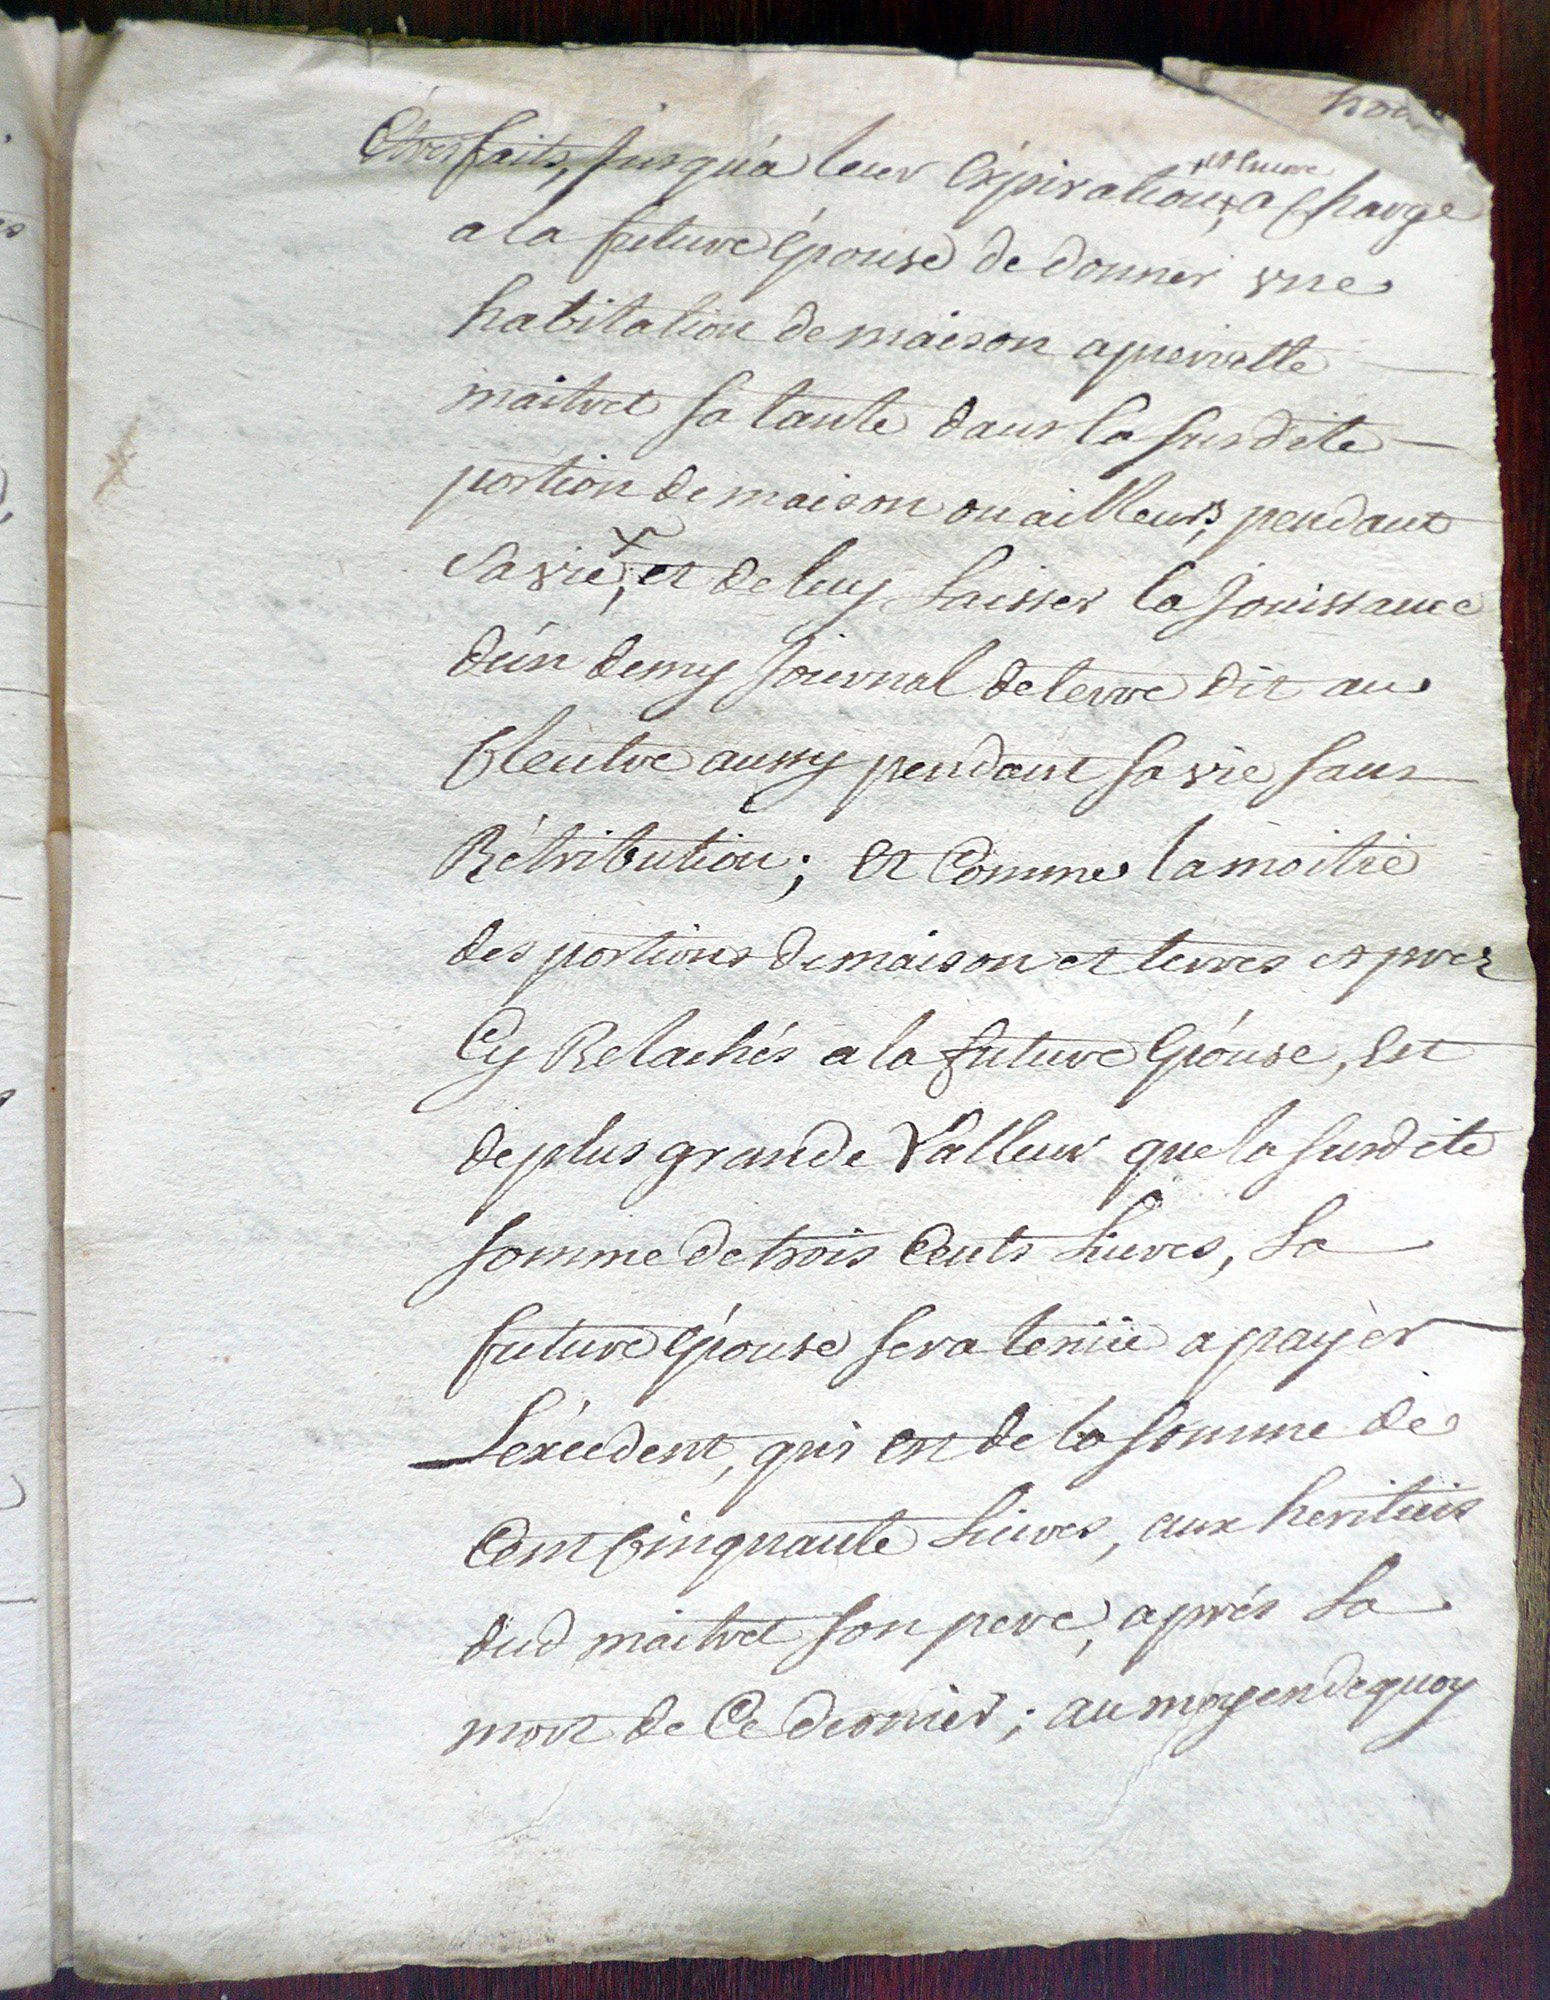 Etres faits, Jusqu'a leur Expiration, + a Charge
+ et Encore
a la future Epouse de donner une
habitation de maison a pierrette
maitret sa tante dans la susdite
portion de maison ou ailleurs, pendant
sa vie, + et de luy Laisser la Jouissance
d'un demy Journal de terre dit au
pendant sa vie sans
Rétribution ; Et Comme la moitié
des portions de maison et terres et prez
Cy Relachés a la future Epouse, Est
de plus grande Valleur que la susdite
somme de trois Cents Livres, La
future Epouse sera tenüe a payér
L'excedent, qui est de la somme de
Cent Cinquante Livres, aux heritiers
dud maitret son pere, aprés La
mort de Ce dernier ; au moyen de quoy